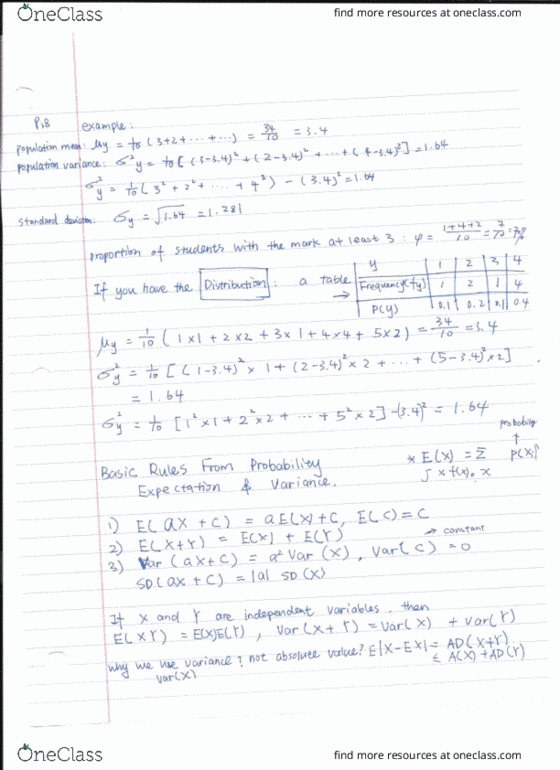 OneClass
find more resources at oneclass.com
P18 example:
population mean: μy = 1/10 (3+2+ ... + ...) = 34/10 = 3.4
population variance: σ²y = 1/10 [(3-3.4)² + (2-3.4)² + ... + (4-3.4)²] = 1.64
σ²y = 1/10 (3² + 2² + ... + 4²) - (3.4)² = 1.64
standard deviation: σy = √1.64 = 1.281
proportion of students with the mark at least 3: φ = (1+4+2)/10 = 7/10 = 70%
If you have the Distribution : a table → y 1 2 3 4
Frequency(fy) 1 2 1 4
P(y) 0.1 0.2 0.1 0.4
μy = 1/10 (1×1 + 2×2 + 3×1 + 4×4 + 5×2) = 34/10 = 3.4
σ²y = 1/10 [(1-3.4)² × 1 + (2-3.4)² × 2 + ... + (5-3.4)² × 2]
= 1.64
σ²y = 1/10 [1²×1 + 2²×2 + ... + 5²×2] - (3.4)² = 1.64
probability
↑
Basic Rules From Probability * E(X) = Σ P(X)
Expectation & Variance. ∫ x f(x). x
1) E(aX + C) = aE(X) + C, E(C) = C
2) E(X+Y) = E(X) + E(Y) → constant
3) Var(aX+C) = a² Var(X), Var(C) = 0
SD(aX + C) = |a| SD(X)
If X and Y are independent variables, then
E(XY) = E(X)E(Y), Var(X+Y) = Var(X) + Var(Y)
why we use variance, not absolute value? E|X-EX| = AD(X+Y)
Var(X) ≤ A(X) + AD(Y)
OneClass
find more resources at oneclass.com